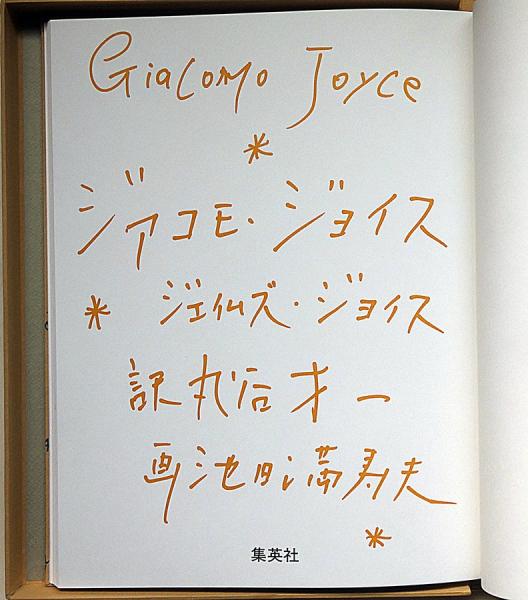 Giacomo Joyce
*
ジアコモ・ジョイス
* ジェイムズ・ジョイス
訳 丸谷才一
画 池田満寿夫
*
集英社